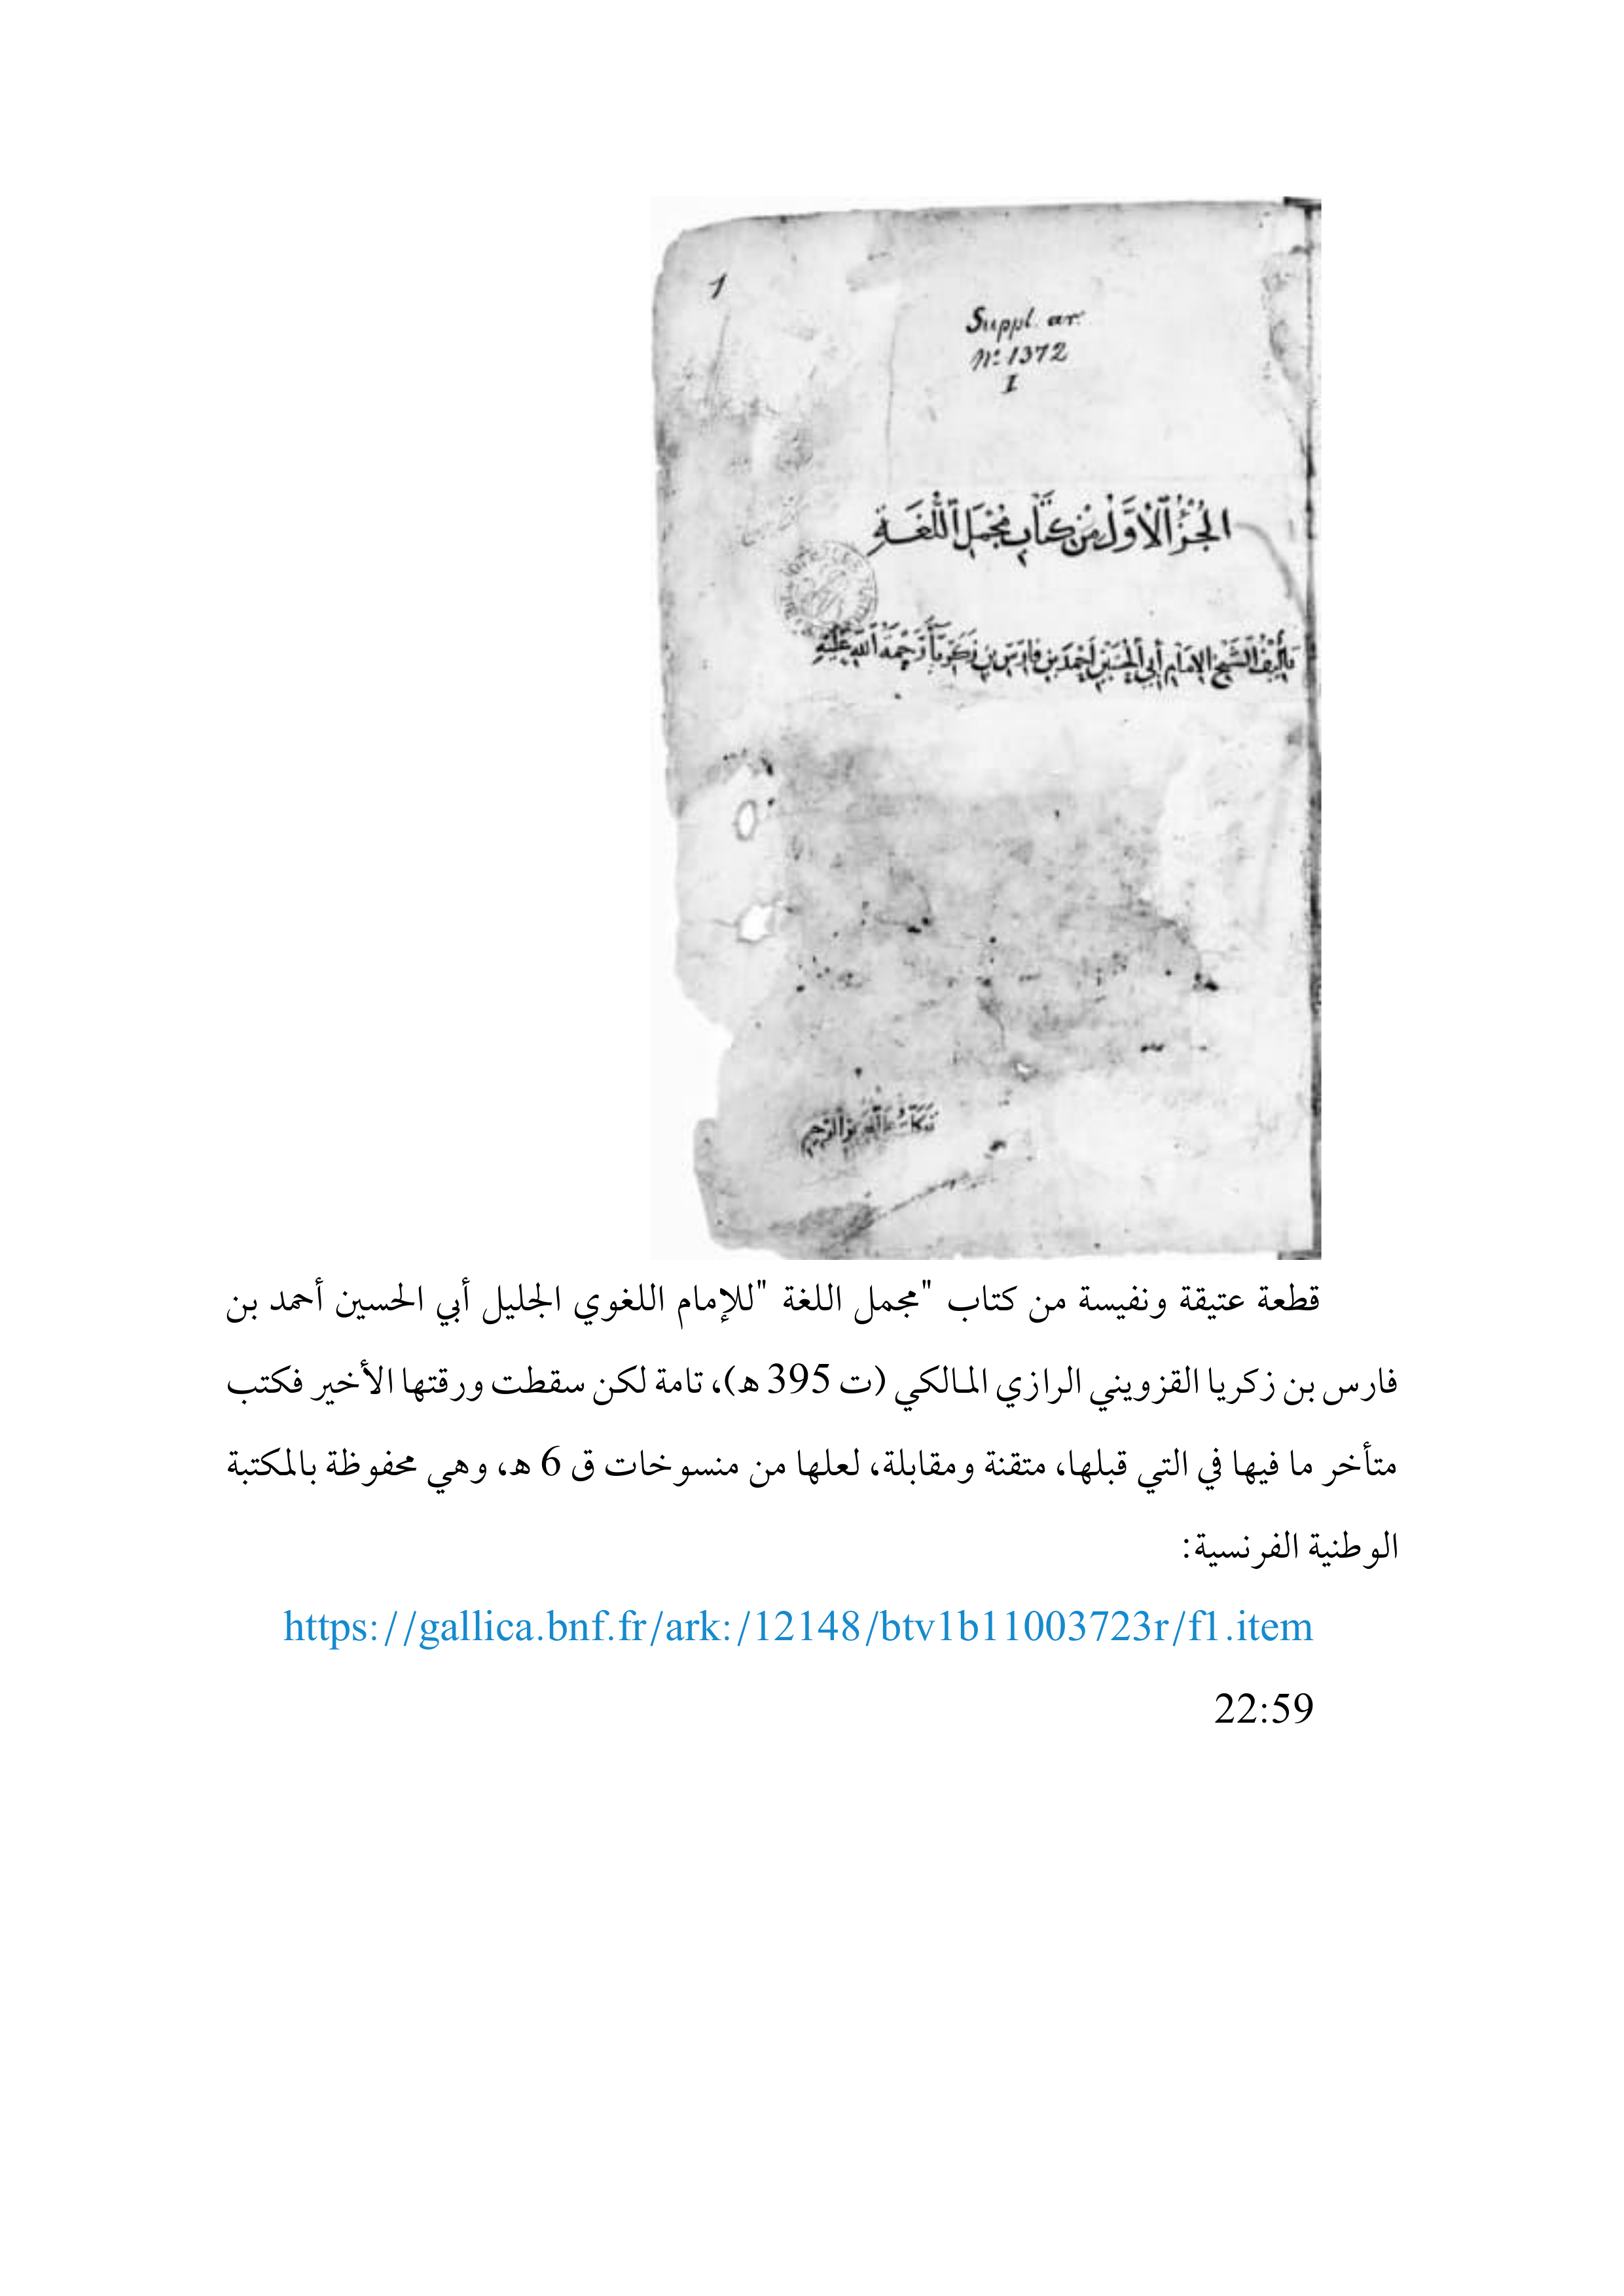 1
Suppl. ar.
N° 1372
I
الجُزْءُ الْأَوَّلُ مِنْ كِتَابِ مُجْمَلِ اللُّغَةِ
تَأْلِيفُ الشَّيْخِ الإِمَامِ أَبِي الْحُسَيْنِ أَحْمَدَ بْنِ فَارِسِ بْنِ زَكَرِيَّا رَحْمَةُ اللهِ عَلَيْهِ
قطعة عتيقة ونفيسة من كتاب "مجمل اللغة "للإمام اللغوي الجليل أبي الحسين أحمد بن
فارس بن زكريا القزويني الرازي المالكي (ت 395 ه)، تامة لكن سقطت ورقتها الأخير فكتب
متأخر ما فيها في التي قبلها، متقنة ومقابلة، لعلها من منسوخات ق 6 ه، وهي محفوظة بالمكتبة
الوطنية الفرنسية:
https://gallica.bnf.fr/ark:/12148/btv1b11003723r/f1.item
22:59